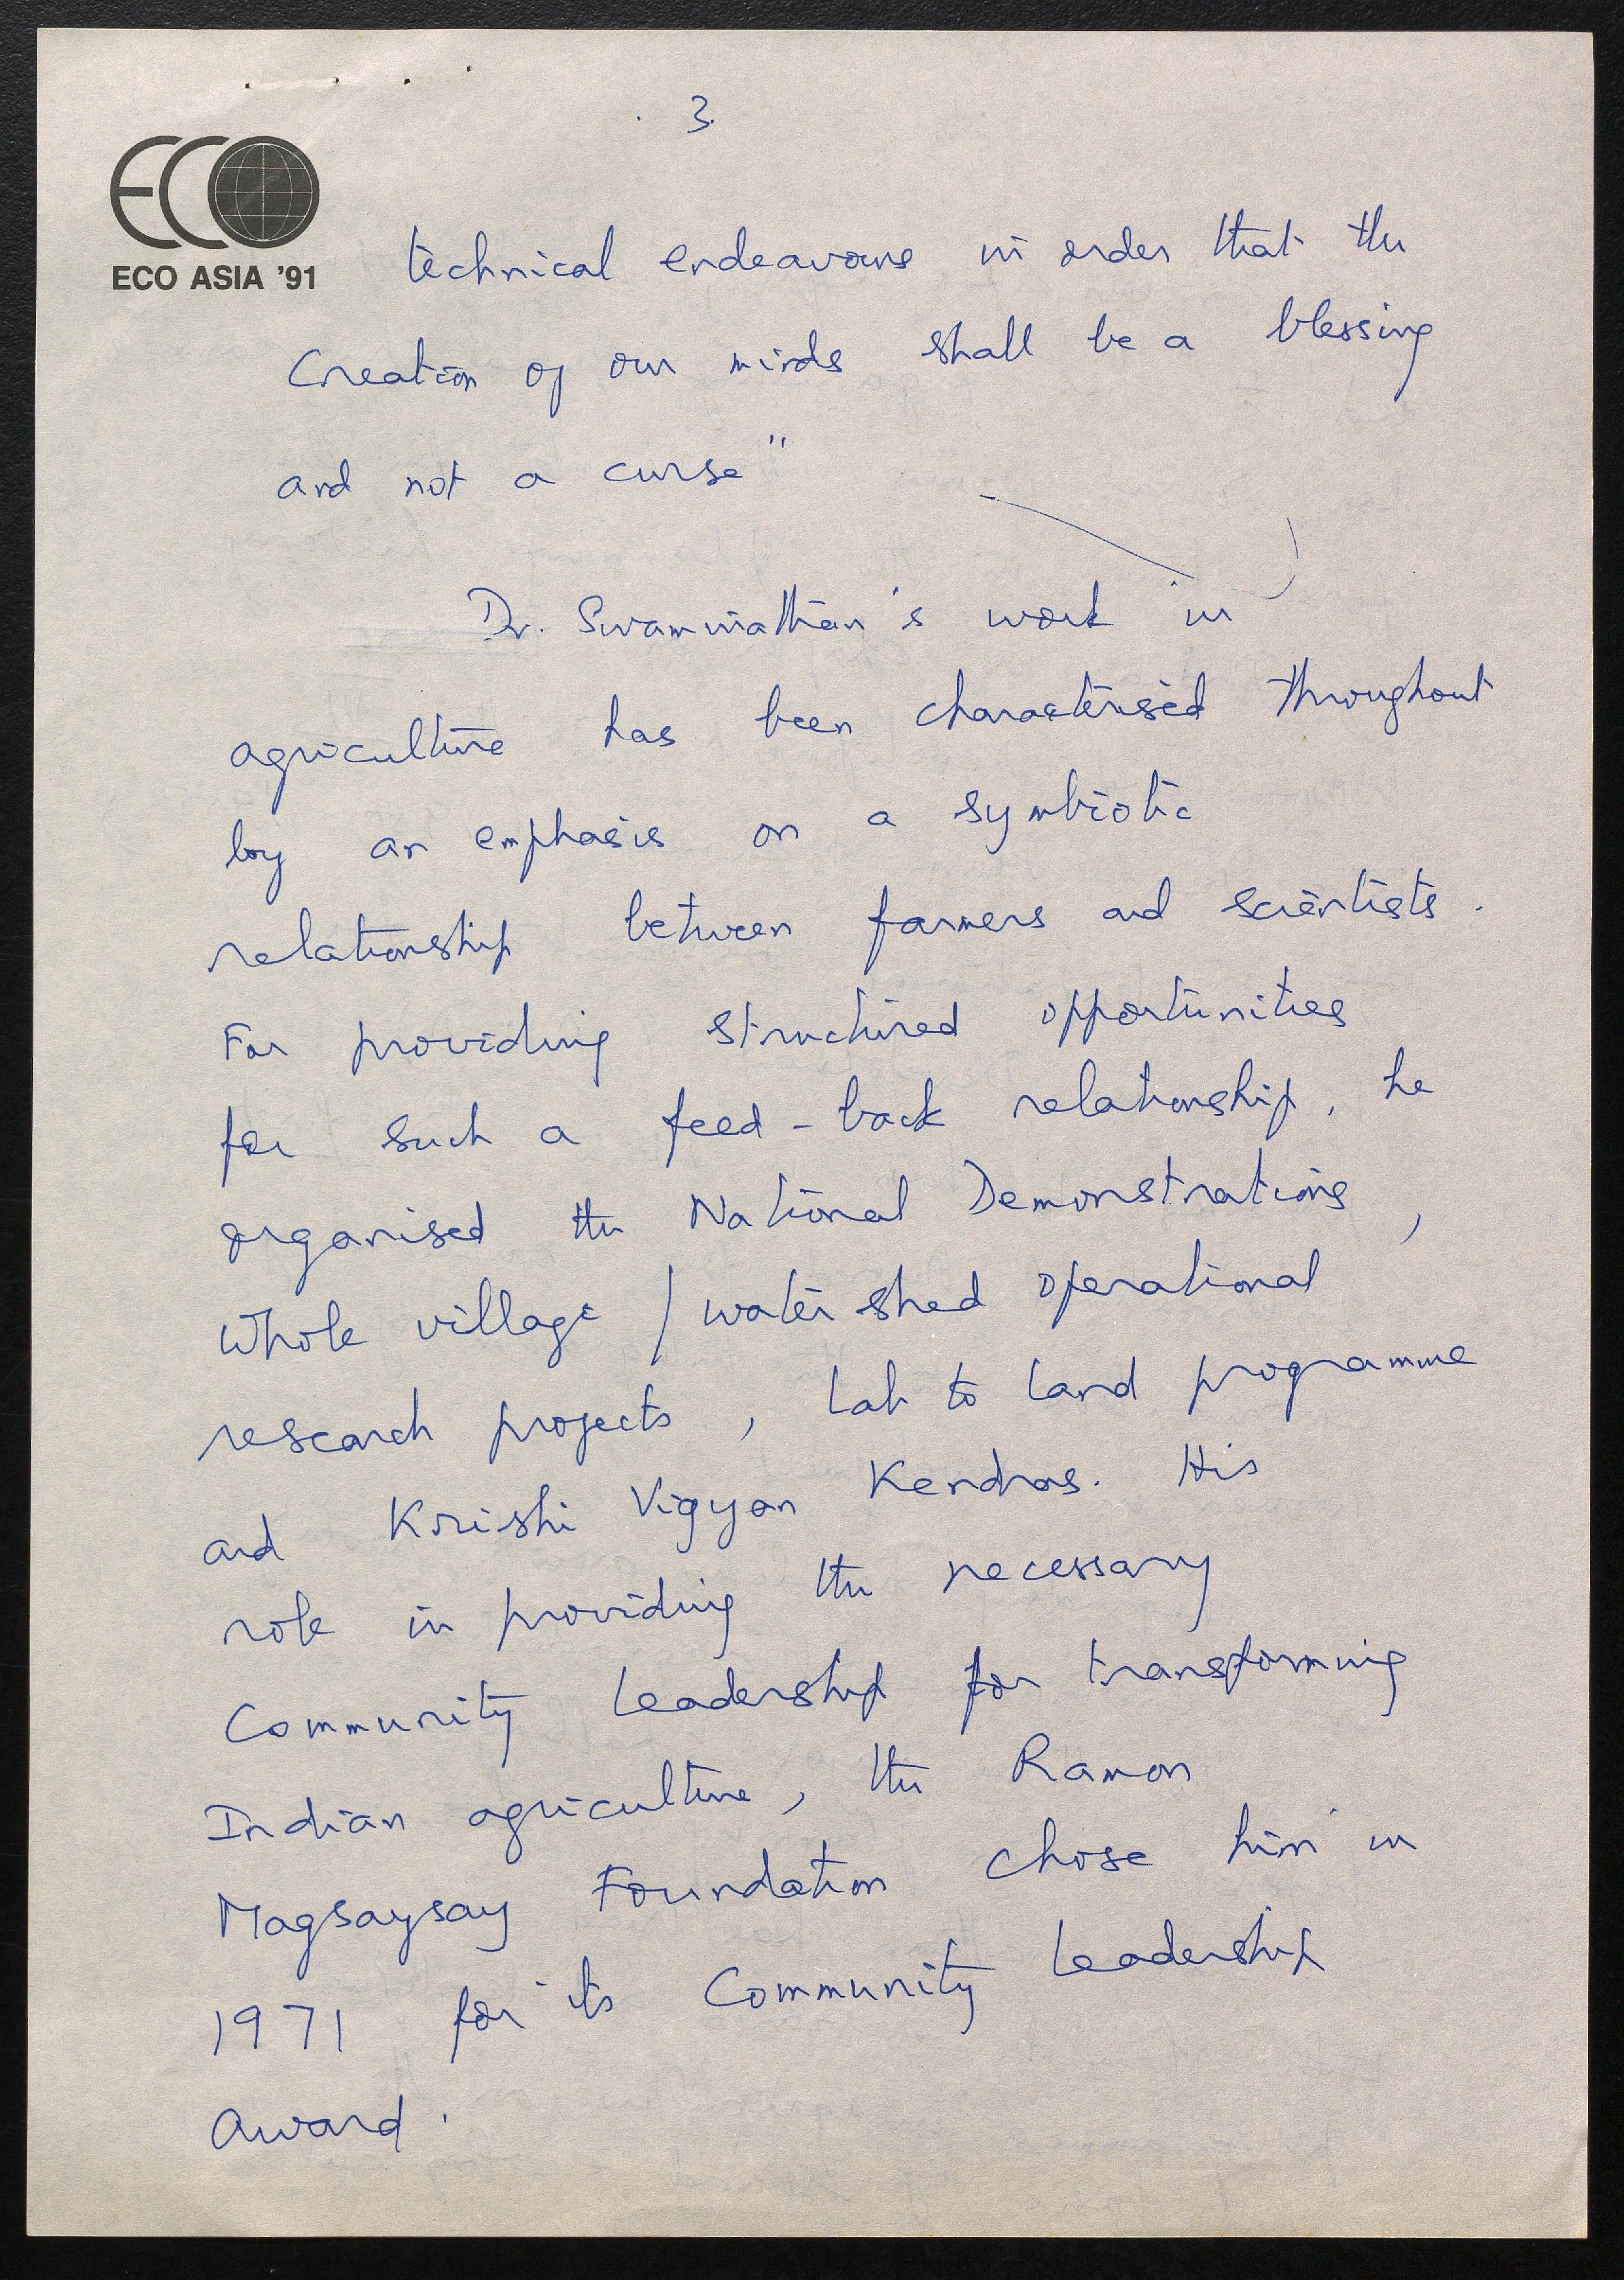 3.
ECO
ECO ASIA '91
technical endeavours in order that the
Creation of our minds shall be a blessing
and not a curse"
Dr. Swaminathan's work in
agriculture has been characterised throughout
by an emphasis on a symbiotic
relationship between farmers and scientists.
For providing structured opportunities
for such a feed-back relationship, he
organised the National Demonstrations,
Whole village / water shed operational
research projects, Lab to Land programme
and Krishi Vigyan Kendras. His
role in providing the necessary
Community Leadership for transforming
Indian agriculture, the Ramon
Magsaysay Foundation chose him in
1971 for its Community Leadership
Award.